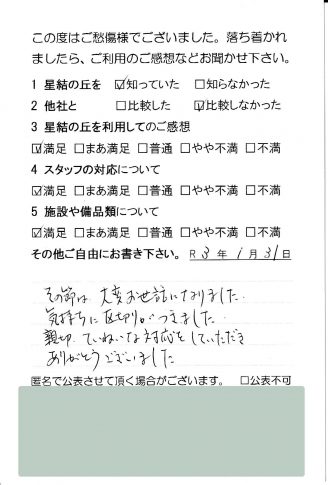 この度はご愁傷様でございました。落ち着かれ
ましたら、ご利用のご感想などお聞かせ下さい。
1 星結の丘を ☑知っていた □知らなかった
2 他社と □比較した ☑比較しなかった
3 星結の丘を利用してのご感想
☑満足 □まあ満足 □普通 □やや不満 □不満
4 スタッフの対応について
☑満足 □まあ満足 □普通 □やや不満 □不満
5 施設や備品類について
☑満足 □まあ満足 □普通 □やや不満 □不満
その他ご自由にお書き下さい。 R 3 年 1 月 31 日
その節は、大変お世話になりました。
気持ちに区切りがつきました。
親切、ていねいな対応をしていただき
ありがとうございました
匿名で公表させて頂く場合がございます。 □公表不可